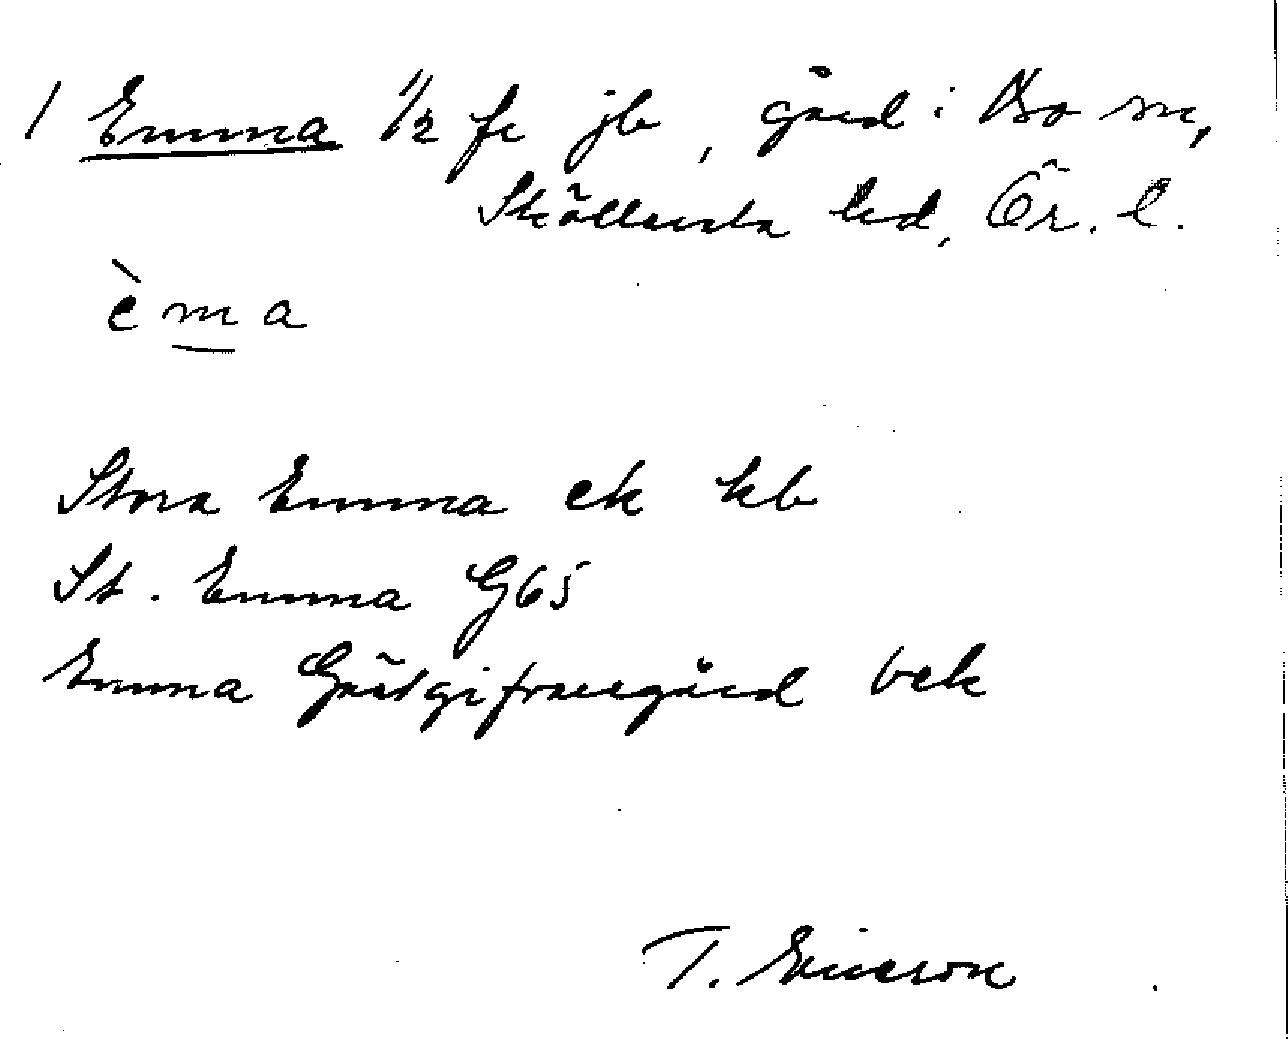 1 Emma 1/2 fr jb, gård i Bo sn,
Sköllersta hd, Ör. l.
è m a
Stora Emma ek kb
St. Emma G65
Emma Gästgifvaregård bek
T. Ericson